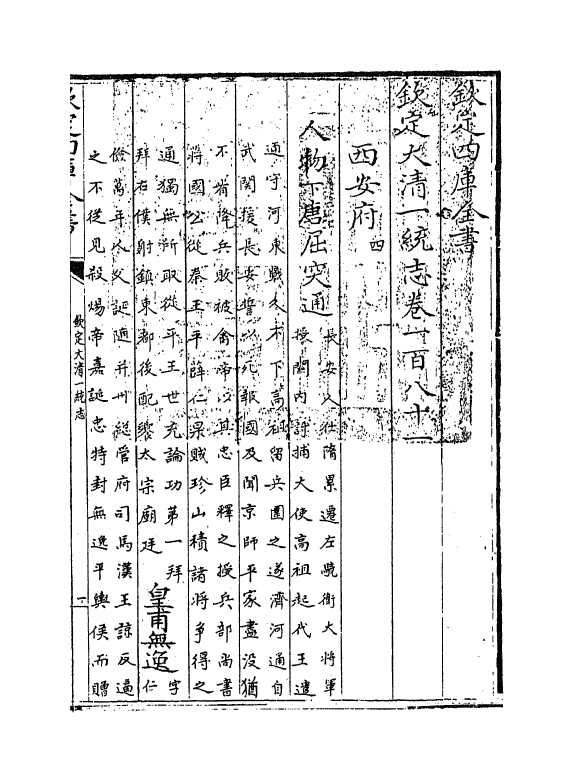 欽定四庫全書
欽定大清一統志卷一百八十一
西安府四
人物下唐屈突通
長安人仕隋累遷左驍衛大將軍
授關內討捕大使高祖起代王遣
通守河東戰久不下高祖留兵圍之遂濟河通自
武關援長安誓以死報國及聞京師平家盡没猶
不肯降兵敗被禽帝以其忠臣釋之授兵部尚書
將國公從秦王平薛仁杲賊珍山積諸將爭得之
通獨無所取從平王世充論功第一拜
拜右僕射鎮東都後配饗太宗廟廷
皇甫無逸
字
仁
儉萬年人父誕隋并州總管府司馬漢王諒反逼
之不從見殺煬帝嘉誕忠特封無逸平輿侯而贈
欽定四庫全書
欽定大清一統志
一